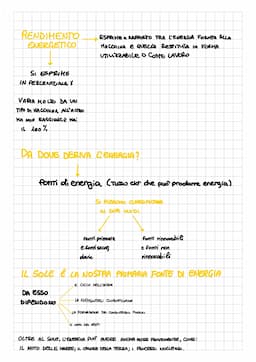 RENDIMENTO ENERGETICO
ESPRIME IL RAPPORTO TRA L'ENERGIA FORNITA ALLA
MACCHINA E QUELLA RESTITUITA IN FORMA
UTILIZZABILE O COME LAVORO
SI ESPRIME
IN PERCENTUALE %
VARIA MOLTO DA UN
TIPO DI MACCHINA ALL'ALTRO
MA NON RAGGIUNGE MAI
IL 100%
DA DOVE DERIVA L'ENERGIA?
fonti di energia (tutto ciò che può produrre energia)
SI POSSONO CLASSIFICARE
IN DUE MODI:
fonti primarie
e fonti secon
darie
fonti rinnovabili
e fonti non
rinnovabili
IL SOLE È LA NOSTRA PRIMARIA FONTE DI ENERGIA
DA ESSO
DIPENDONO
IL CICLO DELL'ACQUA
LA FOTOSINTESI CLOROFILLIANA
LA FORMAZIONE DEI COMBUSTIBILI FOSSILI
IL MOTO DEI VENTI
OLTRE AL SOLE, L'ENERGIA PUÒ AVERE ANCHE ALTRE PROVENIENZE, COME:
IL MOTO DELLE MAREE, IL CALORE DELLA TERRA, I PROCESSI NUCLEARI.